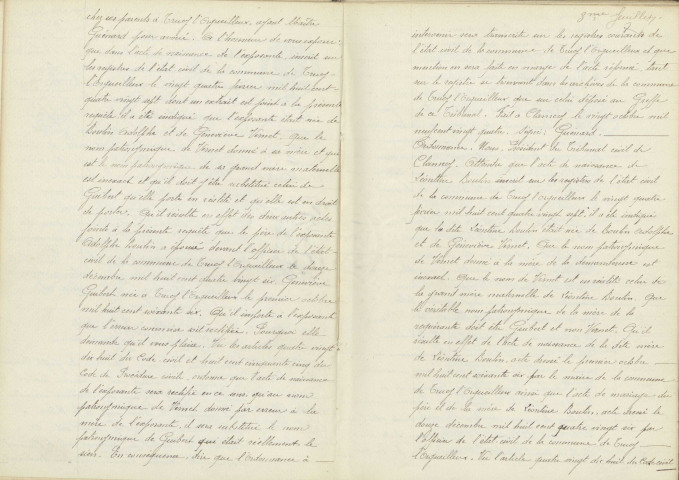 chez ses parents à Crucy l'Orgueilleux, ayant Maître
Guénard pour avoué. A l'honneur de vous exposer
que dans l'acte de naissance de l'exposante, inscrit sur
les registres de l'état civil de la commune de Crucy
l'Orgueilleux le vingt quatre février mil huit cent
quatre vingt sept dont un extrait est joint à la présente
requête il a été indiqué que l'exposante était née de
Boulin Adolphe et de Geneviève Vincent, que le
nom patronymique de Vincent donné à sa mère et qui
est le nom patronymique de sa grand'mère maternelle
est inexact et qu'il doit y être substitué celui de
Guibert qu'elle porte en réalité et qu'elle est en droit
de porter. Qu'il résulte en effet des deux autres actes
joints à la présente requête que le père de l'exposante
Adolphe Boulin a épousé devant l'officier de l'état
civil de la commune de Crucy l'Orgueilleux le douze
décembre mil huit cent quatre vingt six Geneviève
Guibert née à Crucy l'Orgueilleux le premier octobre
mil huit cent soixante six. Qu'il importe à l'exposante
que l'erreur commise soit rectifiée. Pourquoi elle
demande qu'il vous plaise. Vu les articles quatre vingt
dix huit du Code civil et huit cent cinquante cinq du
Code de Procédure civile, ordonner que l'acte de naissance
de l'exposante sera rectifié en ce sens qu'au nom
patronymique de Vincent donné par erreur à la
mère de l'exposante, il sera substitué le nom
patronymique de Guibert qui était réellement le
sien. En conséquence, dire que l'ordonnance à
8me feuillet.
intervenir sera transcrite sur les registres courants de
l'état civil de la commune de Crucy l'Orgueilleux et que
mention en sera faite en marge de l'acte réformé, tant
sur le registre se trouvant dans les archives de la commune
de Crucy l'Orgueilleux que sur celui déposé au Greffe
de ce Tribunal. Fait à Clamecy le vingt octobre mil
neuf cent vingt quatre. Signé: Guénard.
Ordonnance. Nous, Président du Tribunal civil de
Clamecy. Attendu que l'acte de naissance de
Léontine Boulin inscrit sur les registres de l'état civil
de la commune de Crucy l'Orgueilleux le vingt quatre
février mil huit cent quatre vingt sept, il a été indiqué
que la dite Léontine Boulin était née de Boulin Adolphe
et de Geneviève Vincent. Que le nom patronymique
de Vincent donné à la mère de la demanderesse est
inexact. Que le nom de Vincent est en réalité celui de
la grand'mère maternelle de Léontine Boulin. Que
le véritable nom patronymique de la mère de la
requérante doit être Guibert et non Vincent. Qu'il
résulte en effet de l'acte de naissance de la dite mère
de Léontine Boulin, acte dressé le premier octobre
mil huit cent soixante six par le maire de la commune
de Crucy l'Orgueilleux ainsi que l'acte de mariage du
père et de la mère de Léontine Boulin, acte dressé le
douze décembre mil huit cent quatre vingt six par
l'officier de l'état civil de la commune de Crucy
l'Orgueilleux. Vu l'article quatre vingt dix huit du Code civil